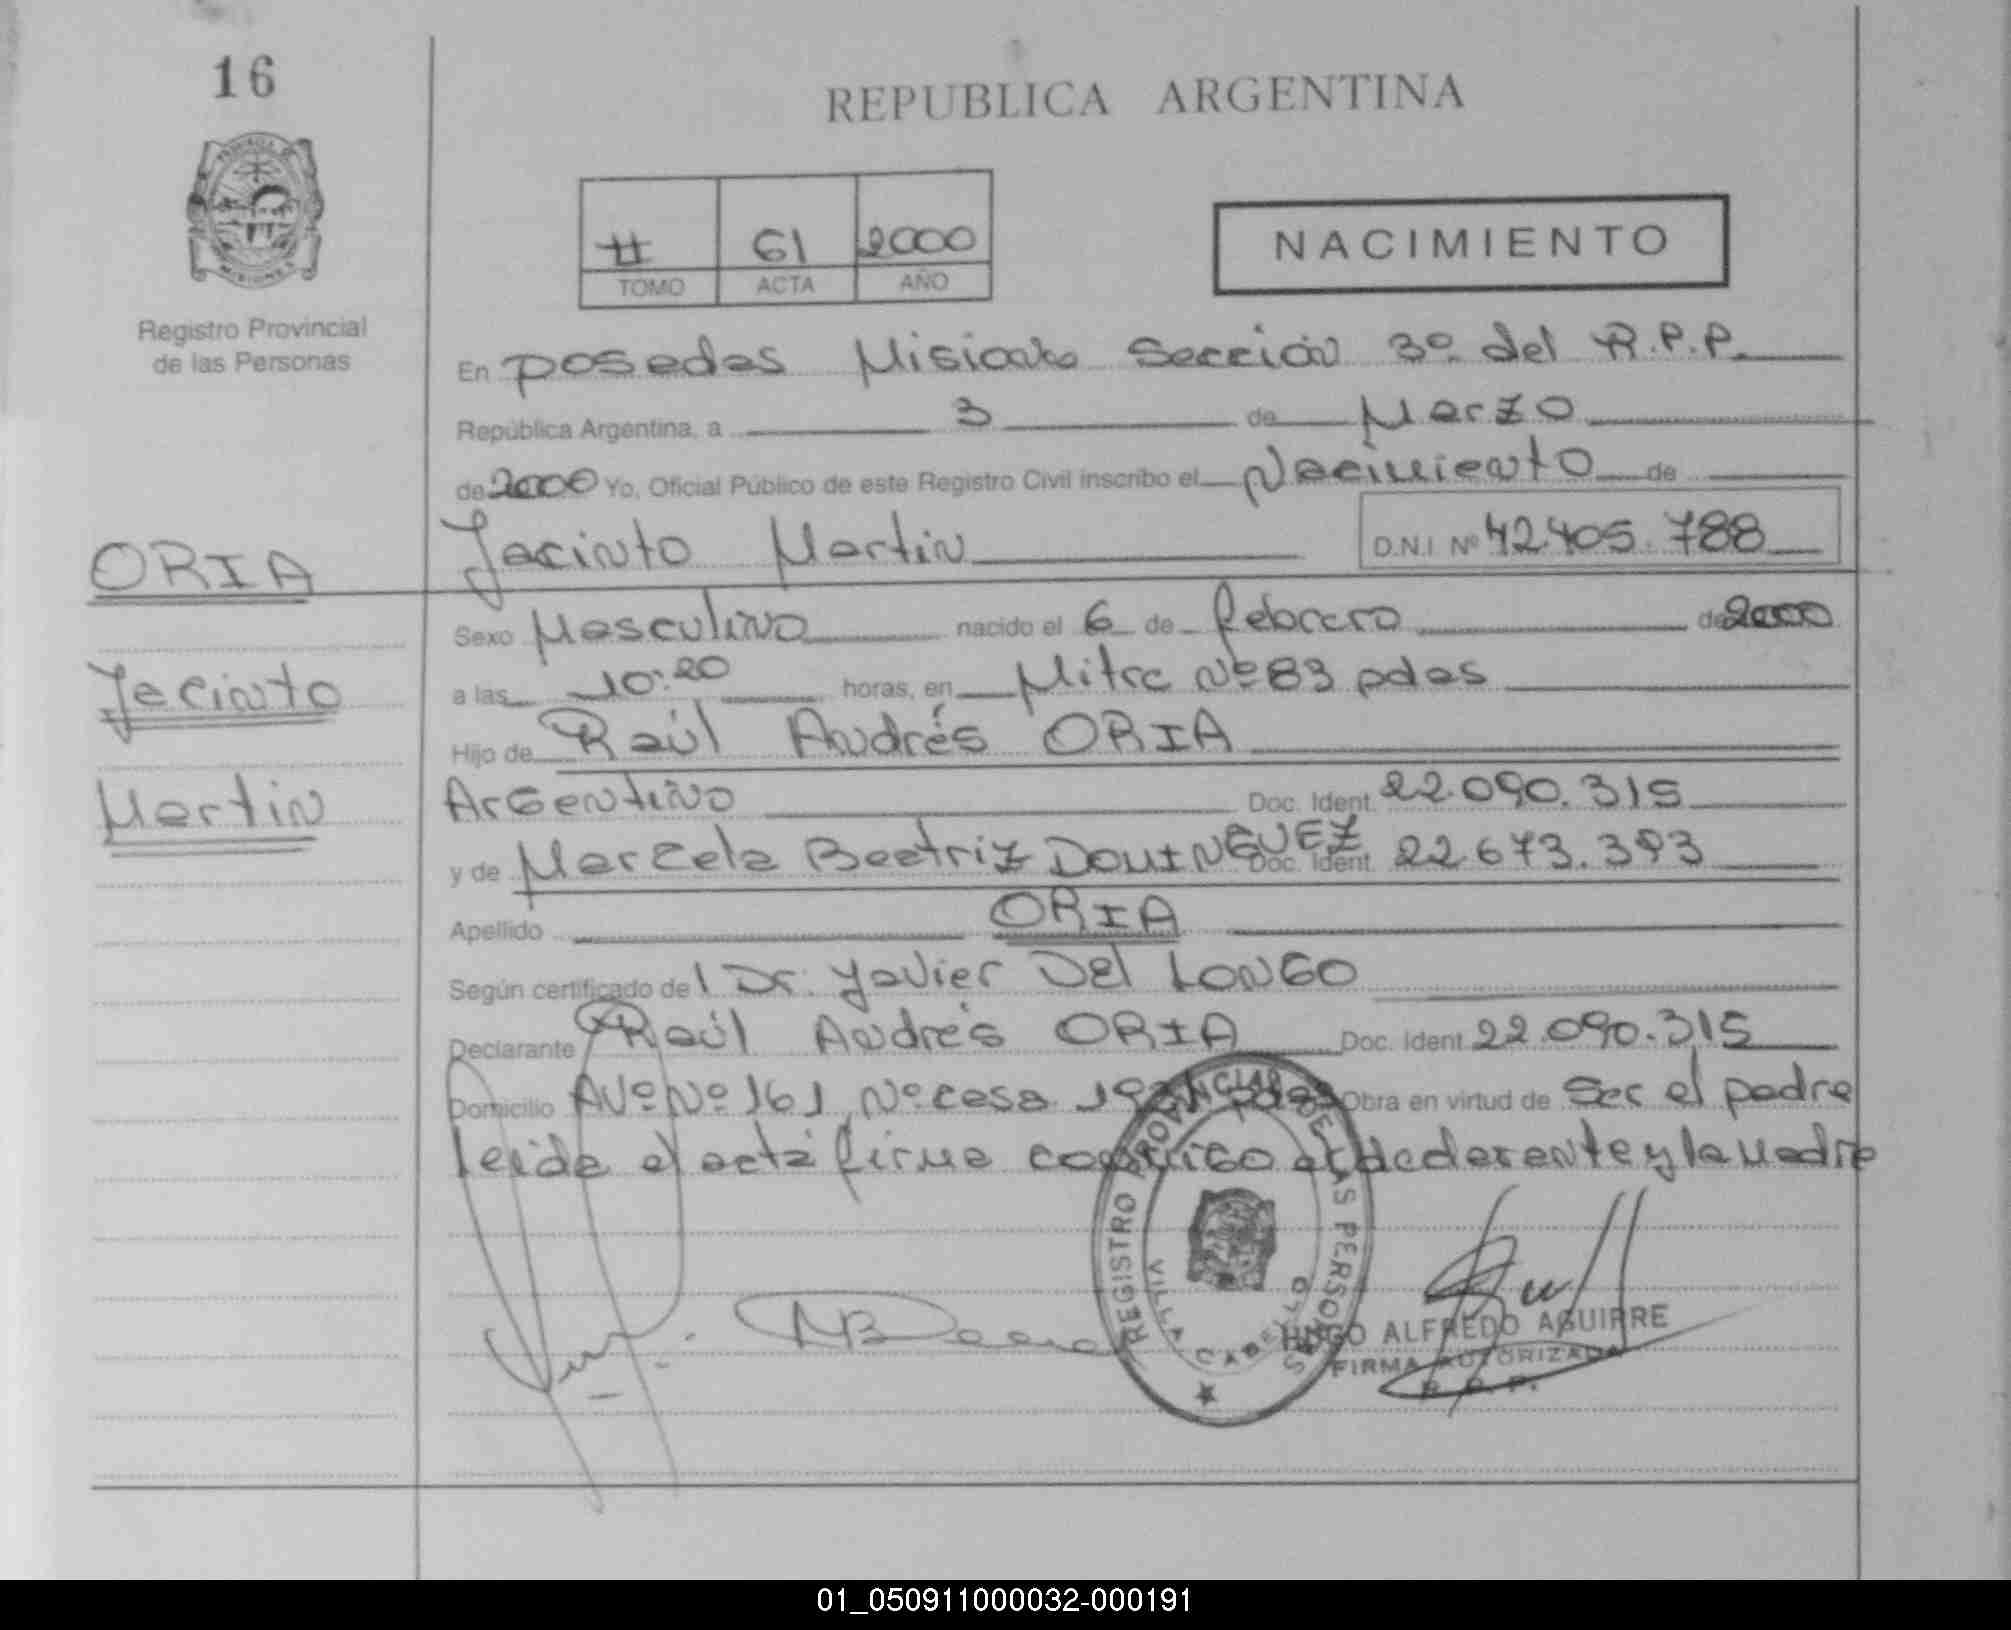 16
REPUBLICA ARGENTINA
PROVINCIA DE
MISIONES
Registro Provincial
de las Personas
II 61 2000
TOMO ACTA AÑO
NACIMIENTO
En posadas Misiones Sección 3º del R.P.P.
República Argentina, a 3 de Marzo
de 2000 Yo, Oficial Público de este Registro Civil inscribo el Nacimiento de
Jacinto Martin D.N.I Nº 42.405.788
ORIA
Jacinto
Martin
Sexo Masculino nacido el 6 de febrero de 2000
a las 10:20 horas, en Mitre Nº 83 pdas
Hijo de Raúl Andrés ORIA
Argentino Doc. Ident. 22.090.315
y de Marcela Beatriz DOMINGUEZ Doc. Ident. 22.673.393
Apellido ORIA
Según certificado del Dr. Javier Del LONGO
Declarante Raúl Andrés ORIA Doc. Ident. 22.090.315
Domicilio Avº Nº 161, Nº casa pdas Obra en virtud de Ser el padre
leida el acta firma conmigo el declarante y la Madre
REGISTRO PROVINCIAL DE LAS PERSONAS
VILLA CABELLO
HUGO ALFREDO AGUIRRE
FIRMA AUTORIZADA
R. P. P.
01_050911000032-000191